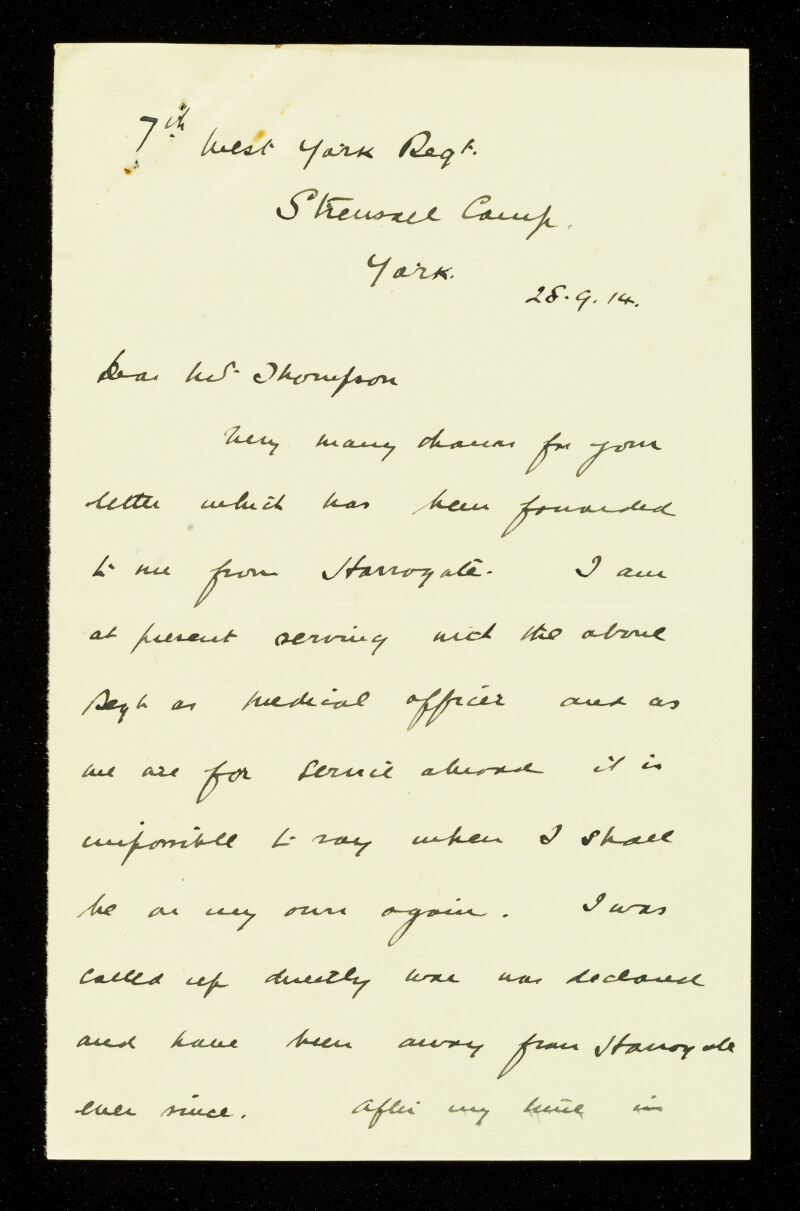 7th West York Regt.
Strensall Camp.
York.
28.9.14.
Dear Mr Thompson
Very many thanks for your
letter which has been forwarded
to me from Harrogate. I am
at present serving with the above
Regt as medical officer and as
we are for service abroad it is
impossible to say when I shall
be on my own again. I was
called up directly war was declared
and have been away from Harrogate
ever since. After my time in